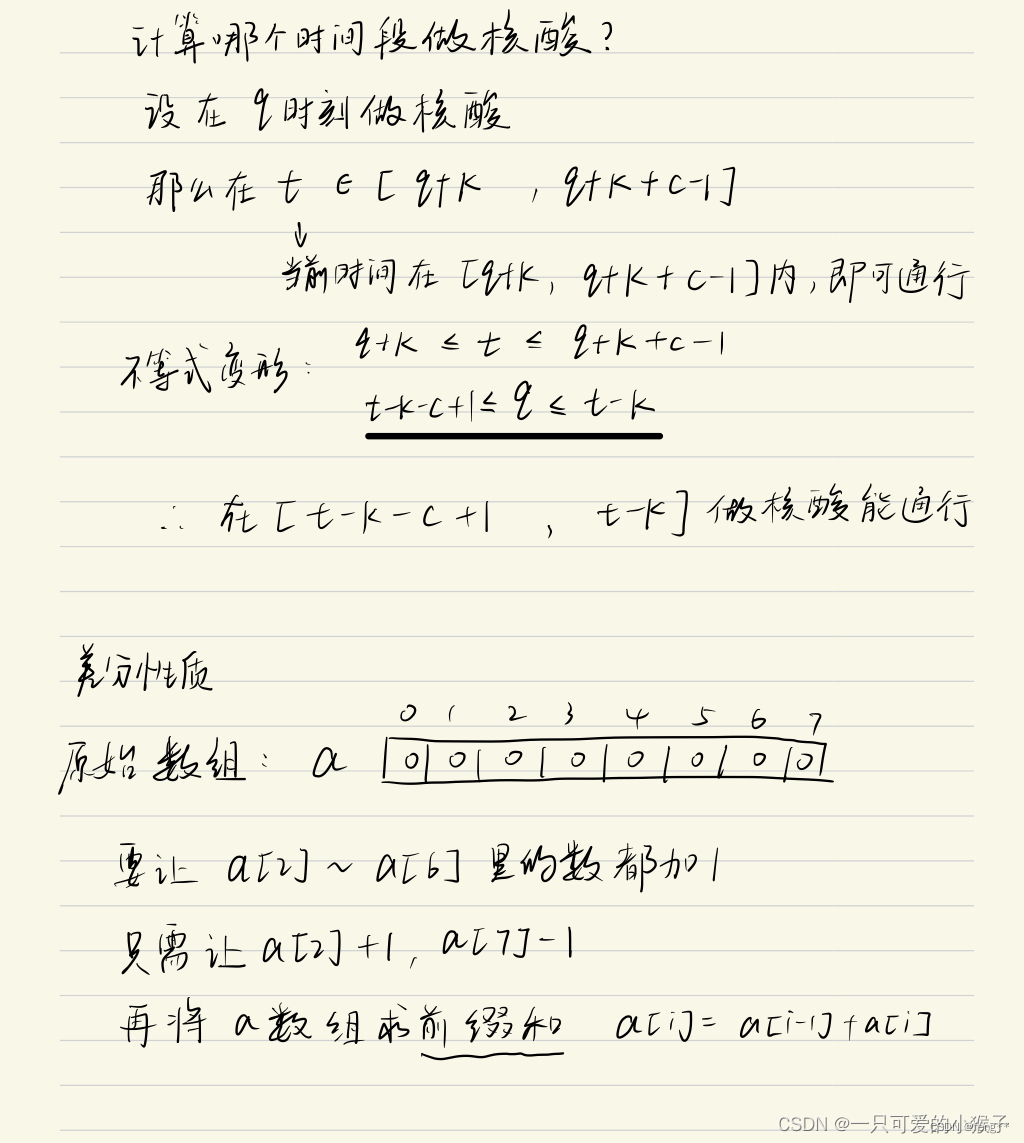 计算哪个时间段做核酸?
设在 q时刻做核酸
那么在 t ∈ [ q+k , q+k+c-1 ]
↓
当前时间在 [q+k, q+k+c-1]内,即可通行
q+k ≤ t ≤ q+k+c-1
不等式变形:
t-k-c+1≤ q ≤ t-k
∴ 在 [ t-k-c+1 , t-k] 做核酸能通行
差分性质
0 1 2 3 4 5 6 7
原始数组: a 0 0 0 0 0 0 0 0
要让 a[2] ~ a[6] 里的数都加1
只需让 a[2]+1, a[7]-1
再将 a数组求前缀和 a[i]= a[i-1]+a[i]
CSDN @一只可爱的小猴子